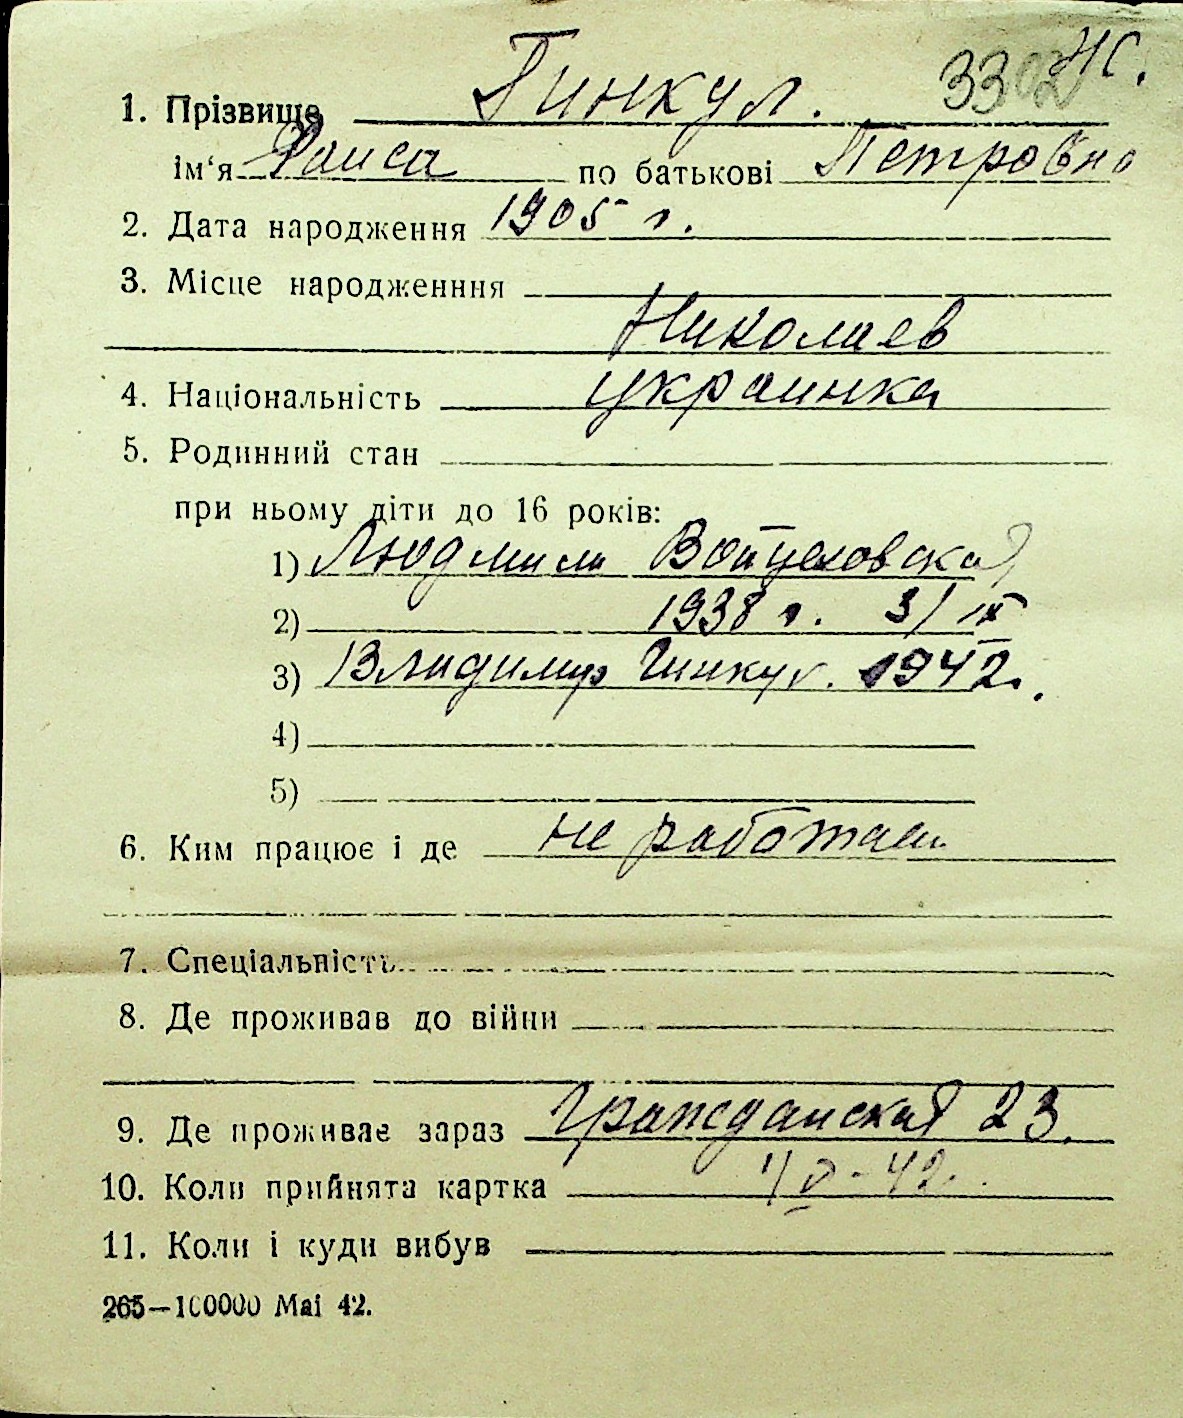 3302 НС.
1. Прізвище Гинкул.
ім‘я Раиса по батькові Петровна
2. Дата народження 1905 г.
3. Місце народженння
Николаев
4. Національність украинка
5. Родинний стан
при ньому діти до 16 років:
1) Людмила Войцеховская
2) 1938 г. 3/IX
3) Владимир Гинкул. 1942.
4)
5)
6. Ким працює і де не работает
7. Спеціальність
8. Де проживав до війни
9. Де проживає зараз Гражданская 23.
10. Коли прийнята картка 42.
11. Коли і куди вибув
265—100000 Mai 42.